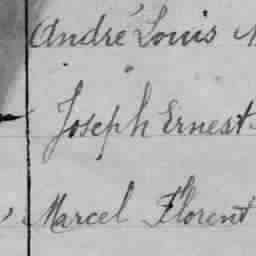 André Louis
Joseph Ernest
Marcel Florent